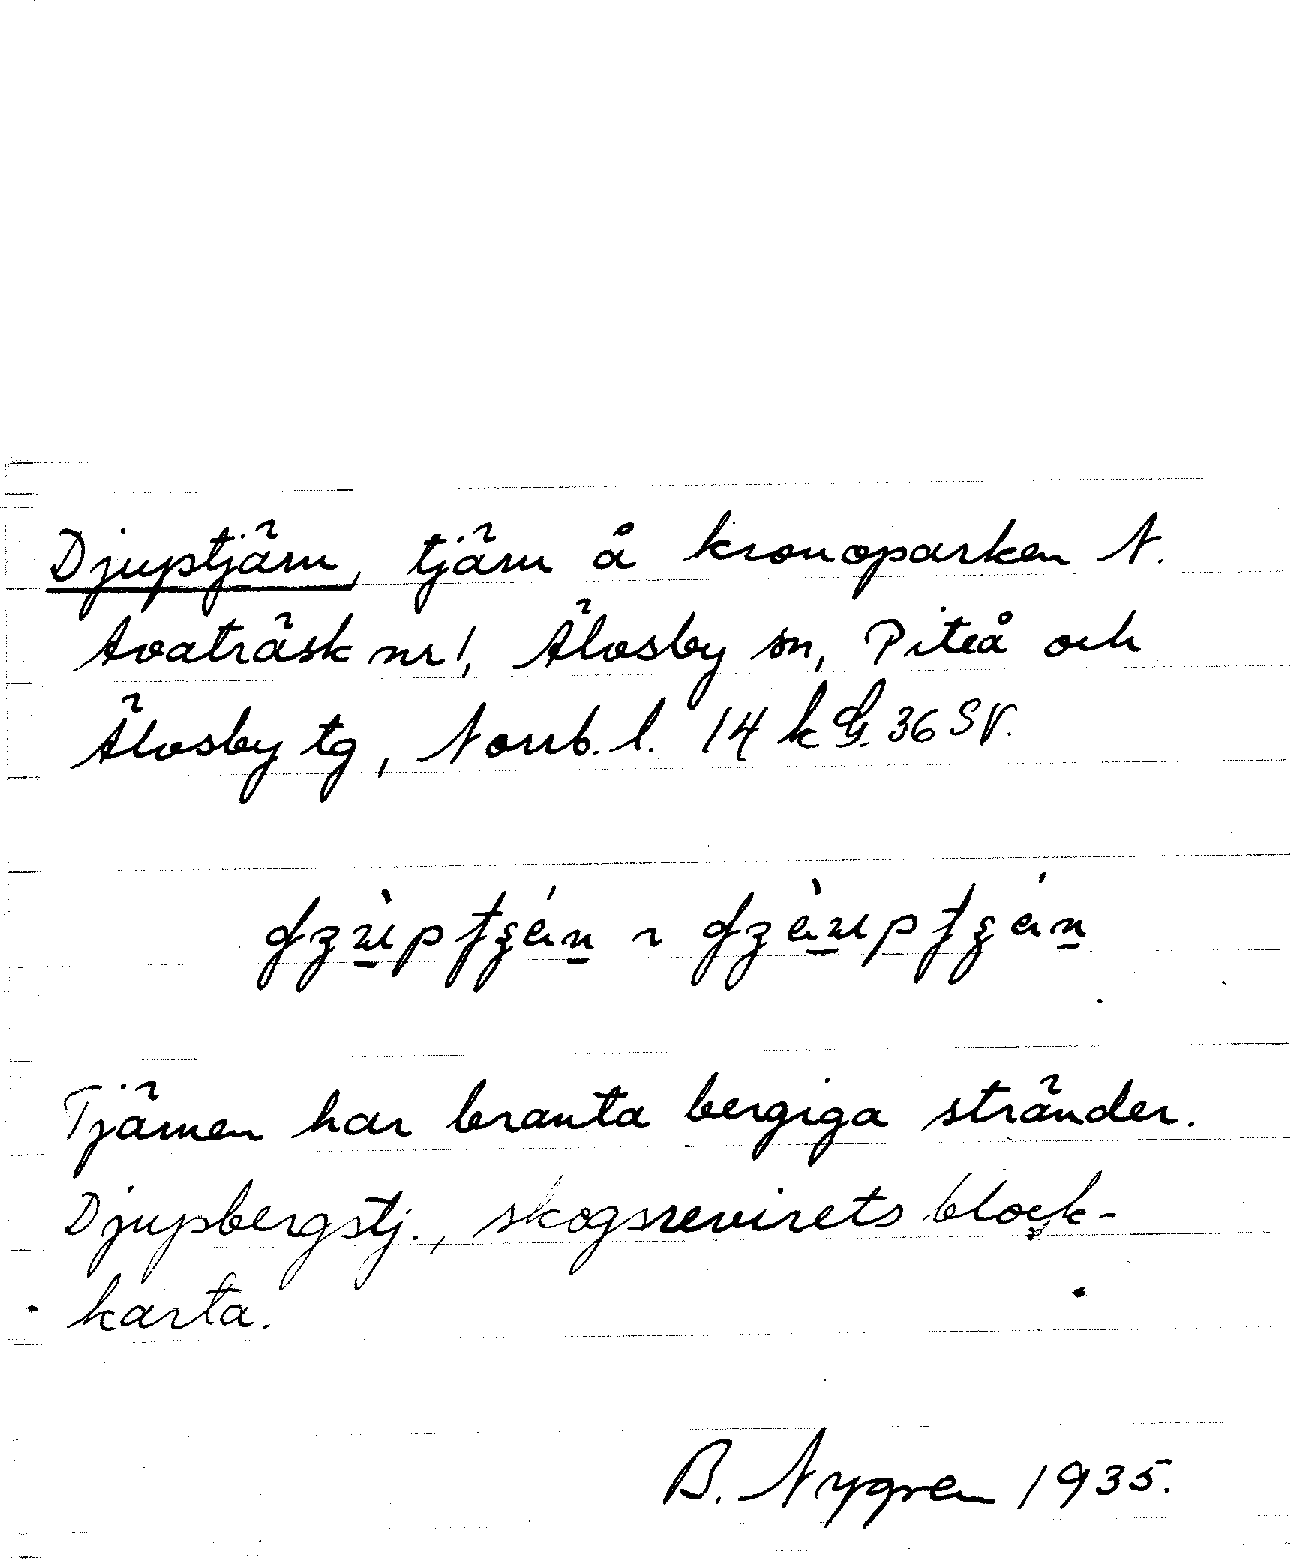 Djuptjärn, tjärn å kronoparken N.
Avaträsk nr 1, Älvsby sn, Piteå och
Älvsby tg, Norrb. l. 14 k G. 36 SV.
Tjärnen har branta bergiga stränder.
Djupbergstj., skogsrevirets block-
karta.
B. Nygren 1935.